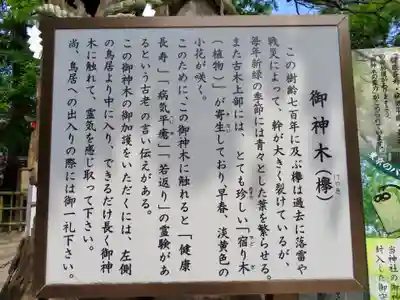 御神木(欅)
けやき
この樹齢七百年に及ぶ欅は過去に落雷や
戦災によって、幹が大きく裂けているが、
毎年新緑の季節には青々とした葉を繁らせる。
また古木上部には、とても珍しい「宿り木
(植物)」が寄生しており、早春、淡黄色の
小花が咲く。
このために、この御神木に触れると「健康
長寿」「病気平癒」「若返り」の霊験があ
るという古老の言い伝えがある。
この御神木の御加護をいただくには、左側
の鳥居より中に入り、できるだけ長く御神
木に触れて、霊気を感じ取って下さい。
尚、鳥居への出入りの際には御一礼下さい。
当神社の御神